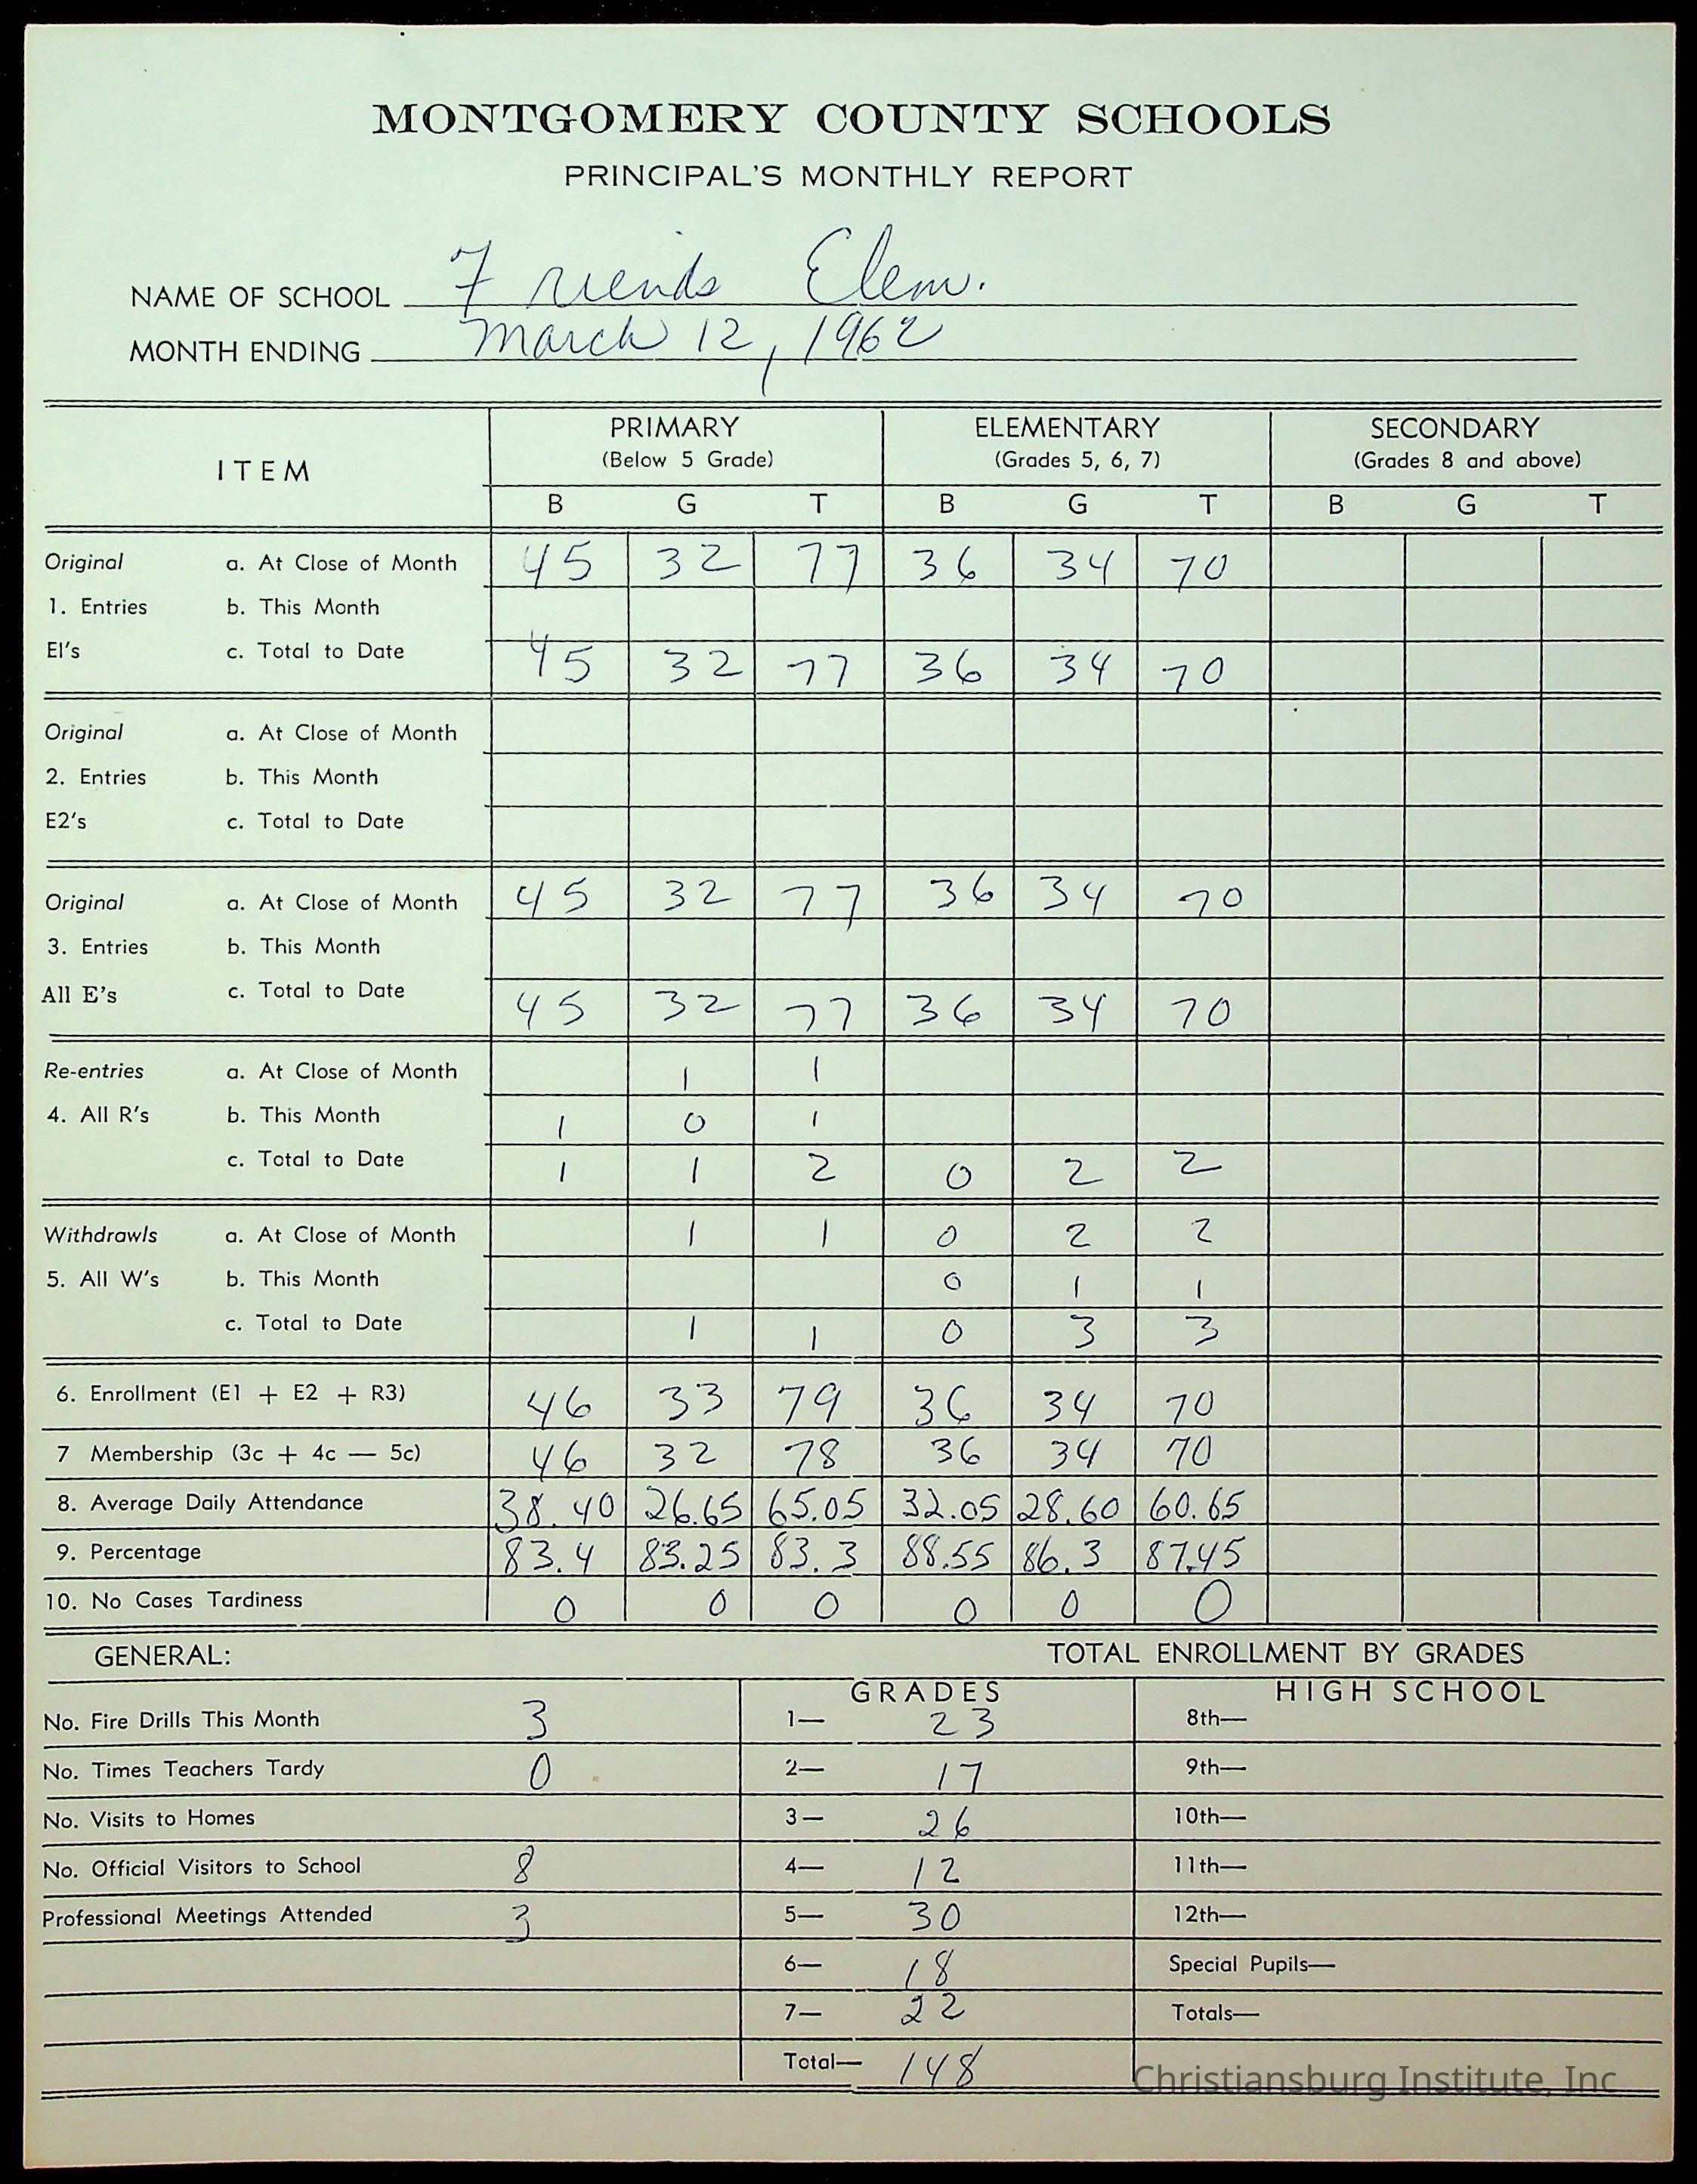 MONTGOMERY COUNTY SCHOOLS
PRINCIPAL'S MONTHLY REPORT
NAME OF SCHOOL Friends Elem.
MONTH ENDING March 12, 1962
ITEM
PRIMARY ELEMENTARY SECONDARY
(Below 5 Grade) (Grades 5, 6, 7) (Grades 8 and above)
B G T B G T B G T
Original a. At Close of Month 45 32 77 36 34 70
1. Entries b. This Month
El's c. Total to Date 45 32 77 36 34 70
Original a. At Close of Month
2. Entries b. This Month
E2's c. Total to Date
Original a. At Close of Month 45 32 77 36 34 70
3. Entries b. This Month
All E's c. Total to Date 45 32 77 36 34 70
Re-entries a. At Close of Month 1 1
4. All R's b. This Month 1 0 1
c. Total to Date 1 1 2 0 2 2
Withdrawls a. At Close of Month 1 1 0 2 2
5. All W's b. This Month 0 1 1
c. Total to Date 1 1 0 3 3
6. Enrollment (E1 + E2 + R3) 46 33 79 36 34 70
7 Membership (3c + 4c — 5c) 46 32 78 36 34 70
8. Average Daily Attendance 38.40 26.65 65.05 32.05 28.60 60.65
9. Percentage 83.4 83.25 83.3 88.55 86.3 87.45
10. No Cases Tardiness 0 0 0 0 0 0
GENERAL: TOTAL ENROLLMENT BY GRADES
GRADES HIGH SCHOOL
No. Fire Drills This Month 3 1— 23 8th—
No. Times Teachers Tardy 0 2— 17 9th—
No. Visits to Homes 3— 26 10th—
No. Official Visitors to School 8 4— 12 11th—
Professional Meetings Attended 3 5— 30 12th—
6— 18 Special Pupils—
7— 22 Totals—
Total— 148
Christiansburg Institute, Inc